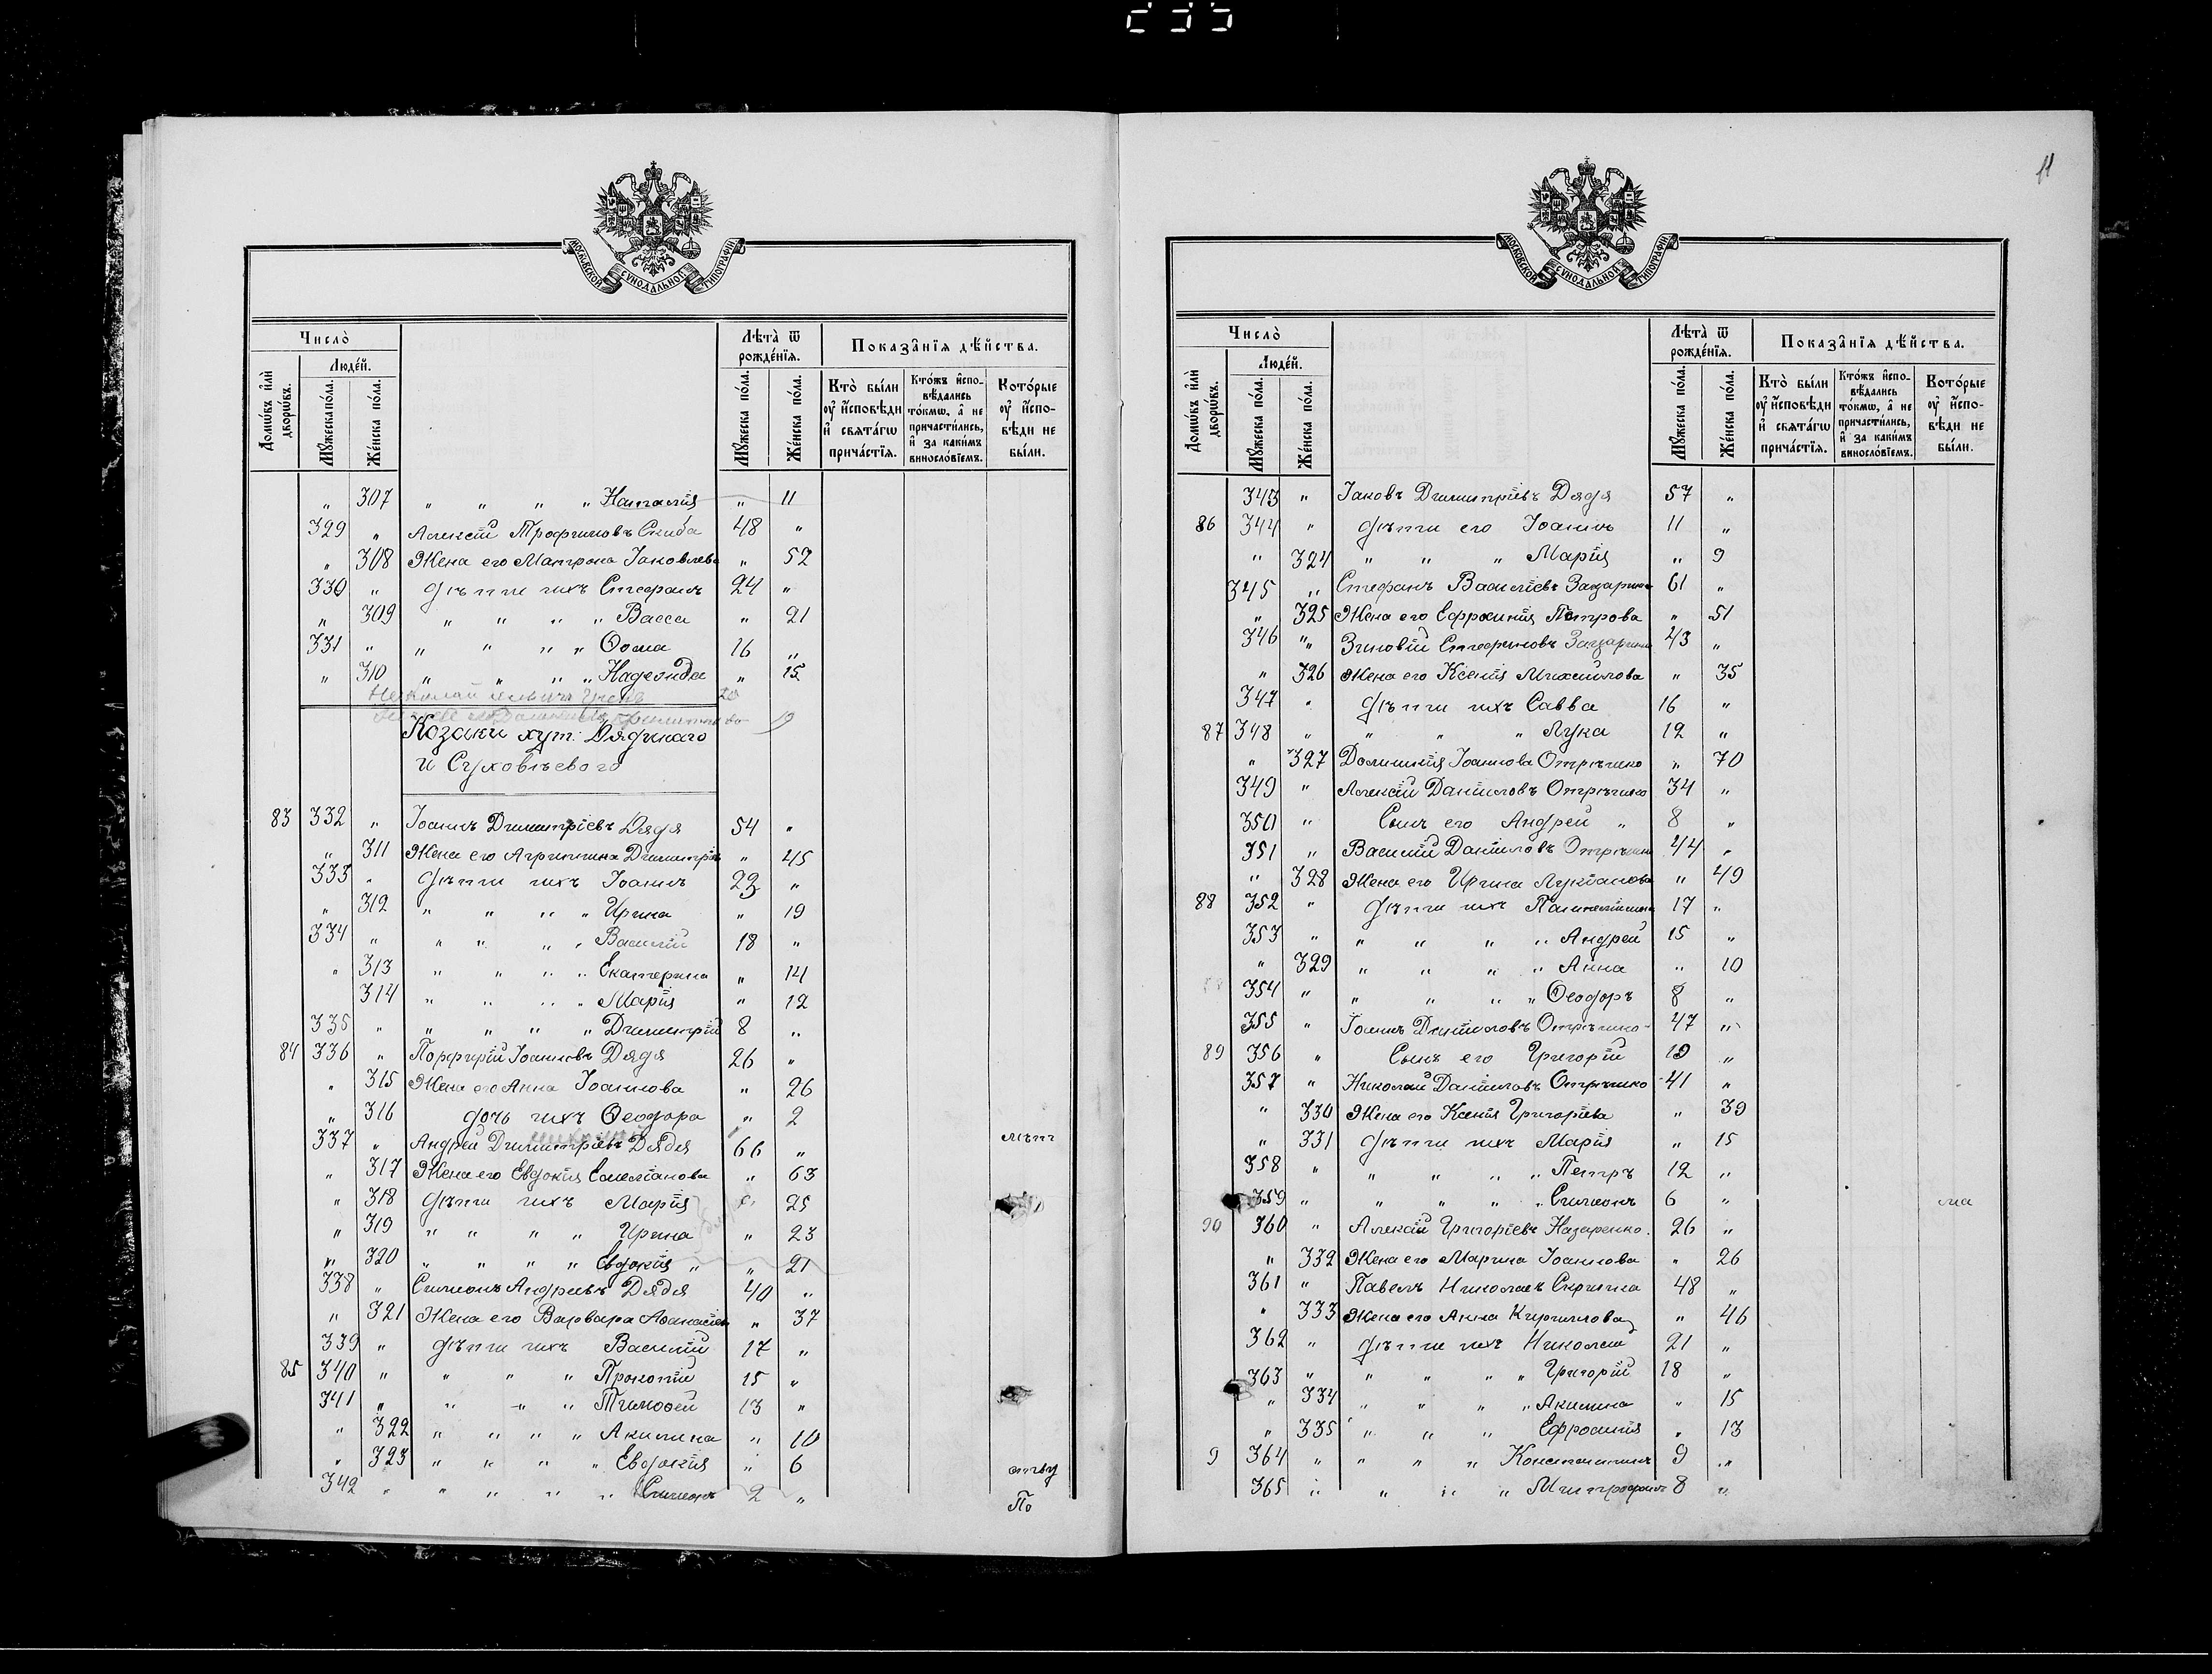 МОСКОВСКОЙ СѴНОДАЛЬНОЙ ТИПОГРАФІИ
Число̀
Людéй.
Домѡ́въ и҆лѝ дворѡ́въ.
Мꙋ́жеска по́ла.
Же́нска по́ла.
Лѣ́та ѿ рожде́нїѧ.
Мꙋ́жеска по́ла.
Же́нска по́ла.
Показа̂нїѧ дѣ́йства.
Кто̀ бы́ли оу҆ и҆́сповѣди и҆ свѧта́гѡ прича́стїѧ.
Кто́жъ и҆спо-вѣ́дались то́кмѡ, а҆ не причасти́лись, и҆ за каки́мъ виносло́вїемъ.
Кото́рые оу҆ и҆́спо-вѣди не бы́ли.
" 307 " " " " Наталія " 11
329 " Алексій Трофимовъ Скиба 48 "
" 308 Жена его Матрона Іаковлева " 52
330 " дѣти ихъ Стефанъ 24 "
" 309 " " " " Васса " 21
331 " " " " " Ѳома 16 "
" 310 " " " " Надежда " 15
Николай 20
19
Козаки хут. Дядинаго
и Суховѣевого
83 332 " Іоаннъ Димитріевъ Дядя 54 "
" 311 Жена его Агриппина Димитрів " 45
333 " дѣти ихъ Іоаннъ 23 "
" 312 " " " " Ирина " 19
334 " " " " " Василій 18 "
" 313 " " " " Екатерина " 14
314 " " " " Марія " 12
335 " " " " " Димитрій 8 "
84 336 " Порфирій Іоанновъ Дядя 26 "
" 315 Жена его Анна Іоаннова " 26
" 316 дочь ихъ Ѳеодора " 2
337 " Андрей Димитріевъ Дядя 66 " лѣтъ
" 317 Жена его Евдокія Емеліанова " 63
" 318 дѣти ихъ Марія 25
" 319 " " " " Ирина " 23
" 320 " " " " Евдокія " " 21
338 " Симеонъ Андреевъ Дядя 40 "
" 321 Жена его Варвара Аѳанасіев " 37
339 " дѣти ихъ Василій 17 "
85 340 " " " " Прокопій 15 "
341 " " " " Тимоѳей 13 "
" 322 " " " " Акилина " 10
" 323 " " " " Евдокія " 6 ству
342 " " " " " Симеонъ 2 " По
11
МОСКОВСКОЙ СѴНОДАЛЬНОЙ ТИПОГРАФІИ
Число̀
Людéй.
Домѡ́въ и҆лѝ дворѡ́въ.
Мꙋ́жеска по́ла.
Же́нска по́ла.
Лѣ́та ѿ рожде́нїѧ.
Мꙋ́жеска по́ла.
Же́нска по́ла.
Показа̂нїѧ дѣ́йства.
Кто̀ бы́ли оу҆ и҆́сповѣди и҆ свѧта́гѡ прича́стїѧ.
Кто́жъ и҆спо-вѣ́дались то́кмѡ, а҆ не причасти́лись, и҆ за каки́мъ виносло́вїемъ.
Кото́рые оу҆ и҆́спо-вѣди не бы́ли.
343 " Іаковъ Димитріевъ Дядя 57 "
86 344 " дѣти его Іоаннъ 11 "
" 324 " " " Марія " 9
345 " Стефанъ Василіевъ 61 "
" 325 Жена его Ефросинія Петрова " 51
346 " Зиновій Стефановъ 43 "
" 326 Жена его Ксенія Михаилова " 35
347 " дѣти ихъ Савва 16 "
87 348 " " " " Лука 12 "
" 327 Домникія Іоаннова Отрѣшко " 70
349 " Алексій Даніиловъ Отрѣшко 34 "
350 " Сынъ его Андрей " 8 "
351 " Василій Даніиловъ Отрѣшко 44 "
" 328 Жена его Ирина Лукіанова " 49
88 352 " дѣти ихъ Пантелеимонъ 17 "
353 " " " " " Андрей 15 "
" 329 " " " " Анна " 10
354 " " " " " Ѳеодоръ 8 "
355 " Іоаннъ Даніиловъ Отрѣшко 47 "
89 356 " Сынъ его Григорій 19 "
357 " Николай Даніиловъ Отрѣшко 41 "
" 330 Жена его Ксенія Григоріева " 39
" 331 дѣти ихъ Марія " 15
358 " " " " " Петръ 12 "
359 " " " " " Симеонъ 6 " ма
90 360 " Алексій Григоріевъ Назаренко. 26 "
" 332 Жена его Марина Іоаннова " 26
361 " Павелъ Николаевъ Скрипка 48 "
" 333 Жена его Анна Кириллова " 46
362 " дѣти ихъ Николай 21 "
363 " " " " " Григорій 18 "
" 334 " " " " Акилина " 15
" 335 " " " Ефросинія " 13
9 364 " " " " Константинъ 9 "
365 " " " " Митрофанъ 8 "